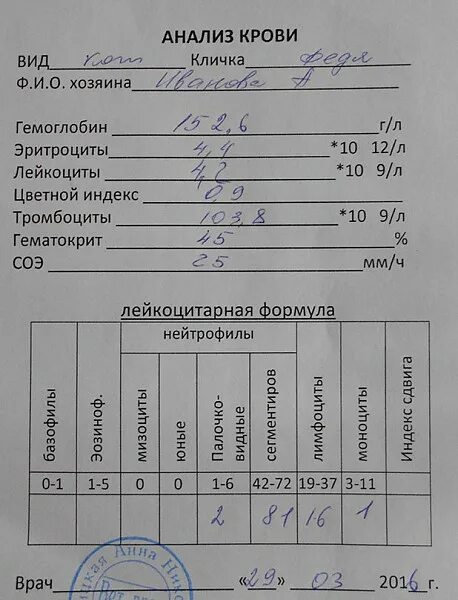 АНАЛИЗ КРОВИ
ВИД кот Кличка Федя
Ф.И.О. хозяина Иванова А
Гемоглобин 152,6 г/л
Эритроциты 4,4 *10 12/л
Лейкоциты 4,2 *10 9/л
Цветной индекс 0,9
Тромбоциты 103,8 *10 9/л
Гематокрит 45 %
СОЭ 25 мм/ч
лейкоцитарная формула
нейтрофилы
базофилы Эозиноф. мизоциты юные Палочко-видные сегментиров лимфоциты моноциты Индекс сдвига
0-1 1-5 0 0 1-6 42-72 19-37 3-11
2 81 16 1
Анна Нико
Врач «29» 03 2016г.